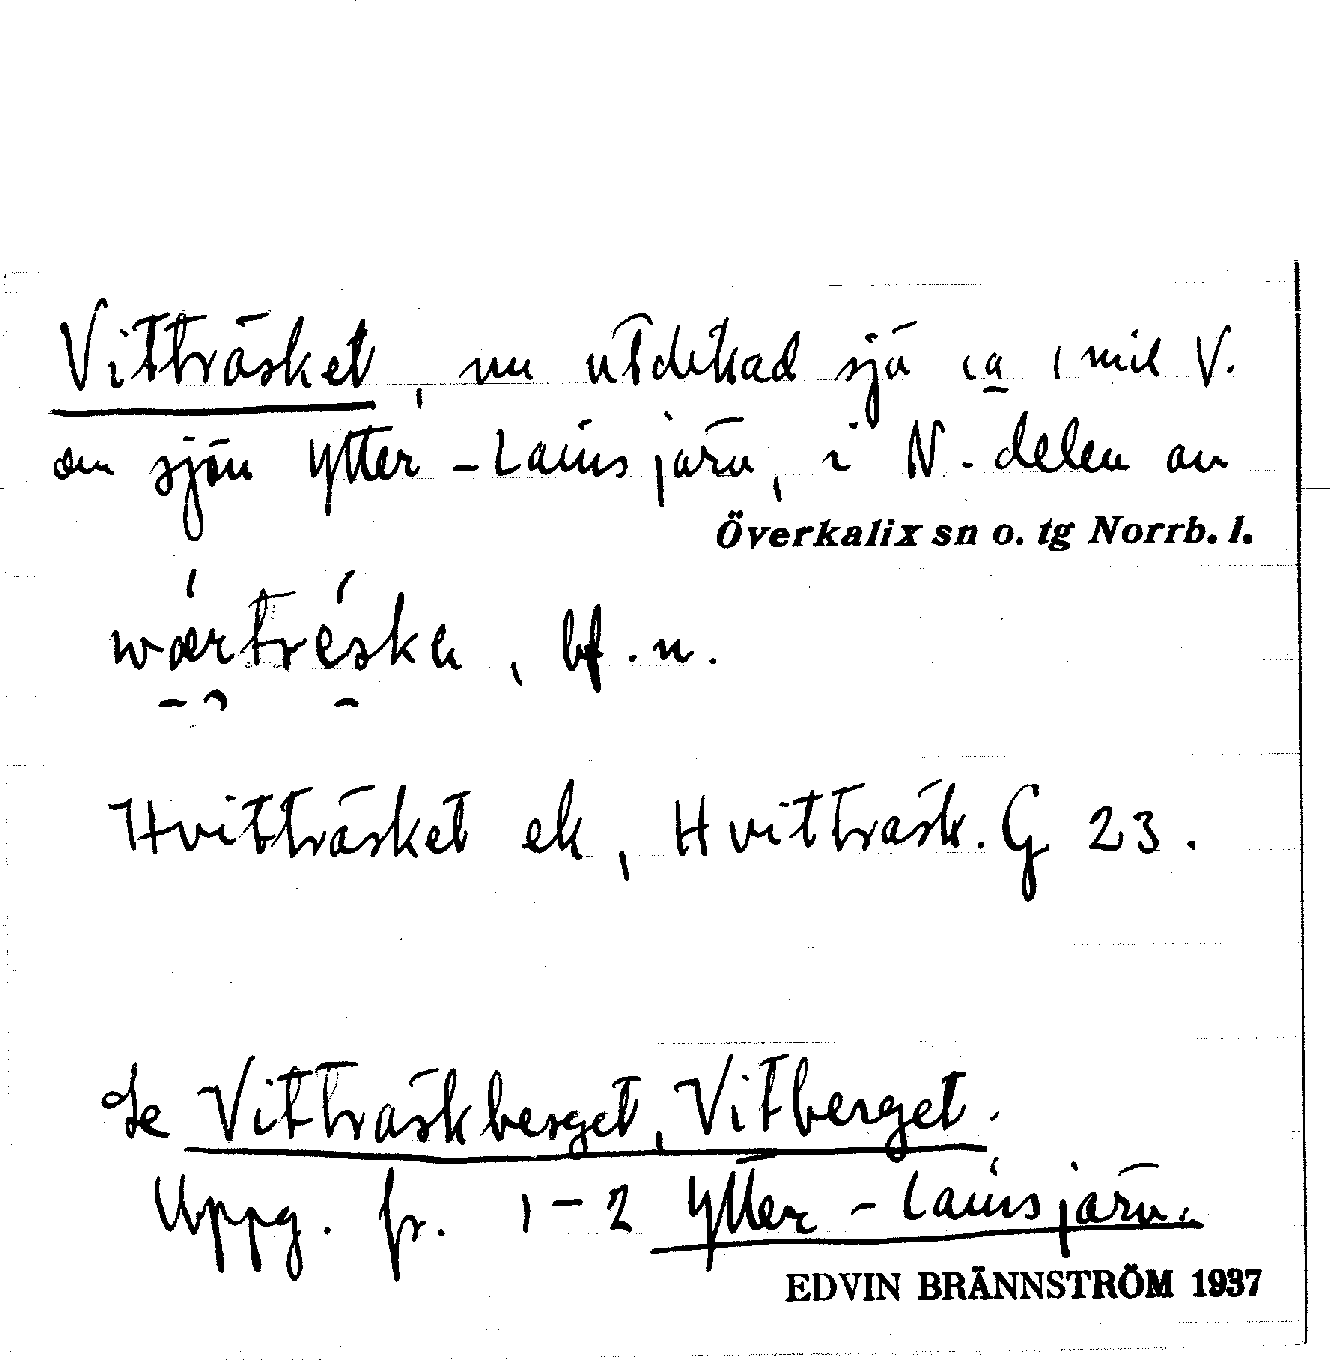 Vitträsket, nu utdikad sjö ca 1 mil V.
om sjön Ytter-Lainsjärv, i N. delen av
Överkalix sn o. tg Norrb. l.
wǽrtréska, bf. n.
Hvitträsket ek, Hvitträsk. G 23.
Se Vitträskberget, Vitberget.
Uppg. fr. 1-2 Ytter-Lainsjärv.
EDVIN BRÄNNSTRÖM 1937